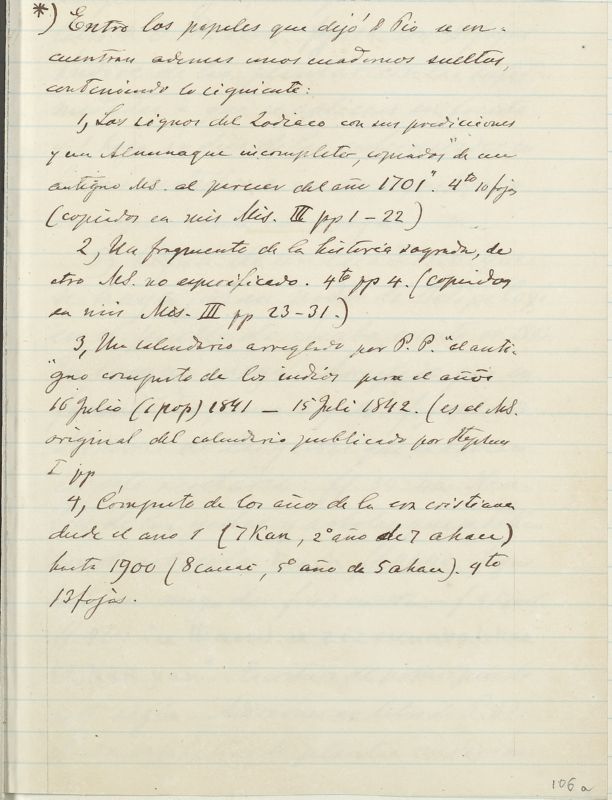 *) Entre los papeles que dejó D Pio se en-
cuentran ademas unos cuadernos sueltos,
conteniendo lo siguiente:
1, Los signos del Zodiaco con sus prediciones
y un Almanaque incompleto, copiados "de un
antiguo MS. al parecer del año 1701". 4to 10 fojas
(copiados en mis Mis. III pp 1-22)
2, Un fragmento de la historia sagrada, de
otro MS. no especificado. 4to pp 4. (copiados
en mis Mis. III pp 23-31.)
3, Un calendario arreglado por P. P. "al anti-
"guo computo de los indios para el años
16 Julio (1 pop) 1841 — 15 Juli 1842. (es el MS.
original del calendario publicado por Stephens
I pp
4, Cómputo de los años de la era cristiana
desde el año 1 (7 Kan, 2º año de 7 ahau)
hasta 1900 (8 cauac, 5º año de 5 ahau). 4to
13 fojas.
106 a